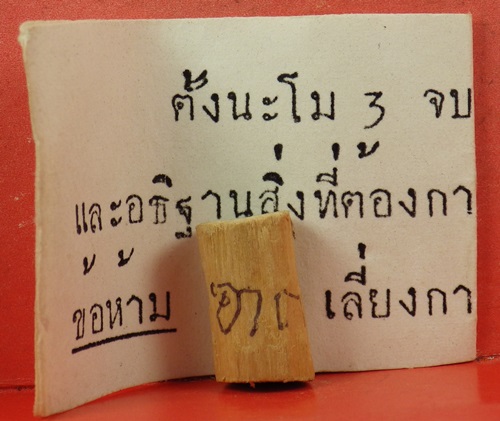 ตั้งนะโม 3 จบ
และอธิฐานสิ่งที่ต้องกา
ข้อห้าม เลี่ยงกา